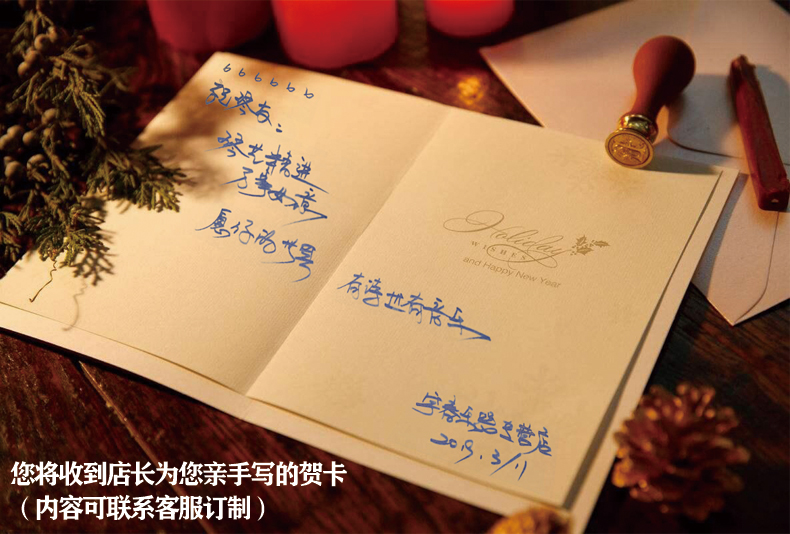 6 6 6 6 6 6
祝琴友：
琴艺精进
万事如意
愿你的世界
Holiday
WISHES
and Happy New Year
有诗也有音乐
乐器直营店
2019.3/11
您将收到店长为您亲手写的贺卡
（内容可联系客服订制）